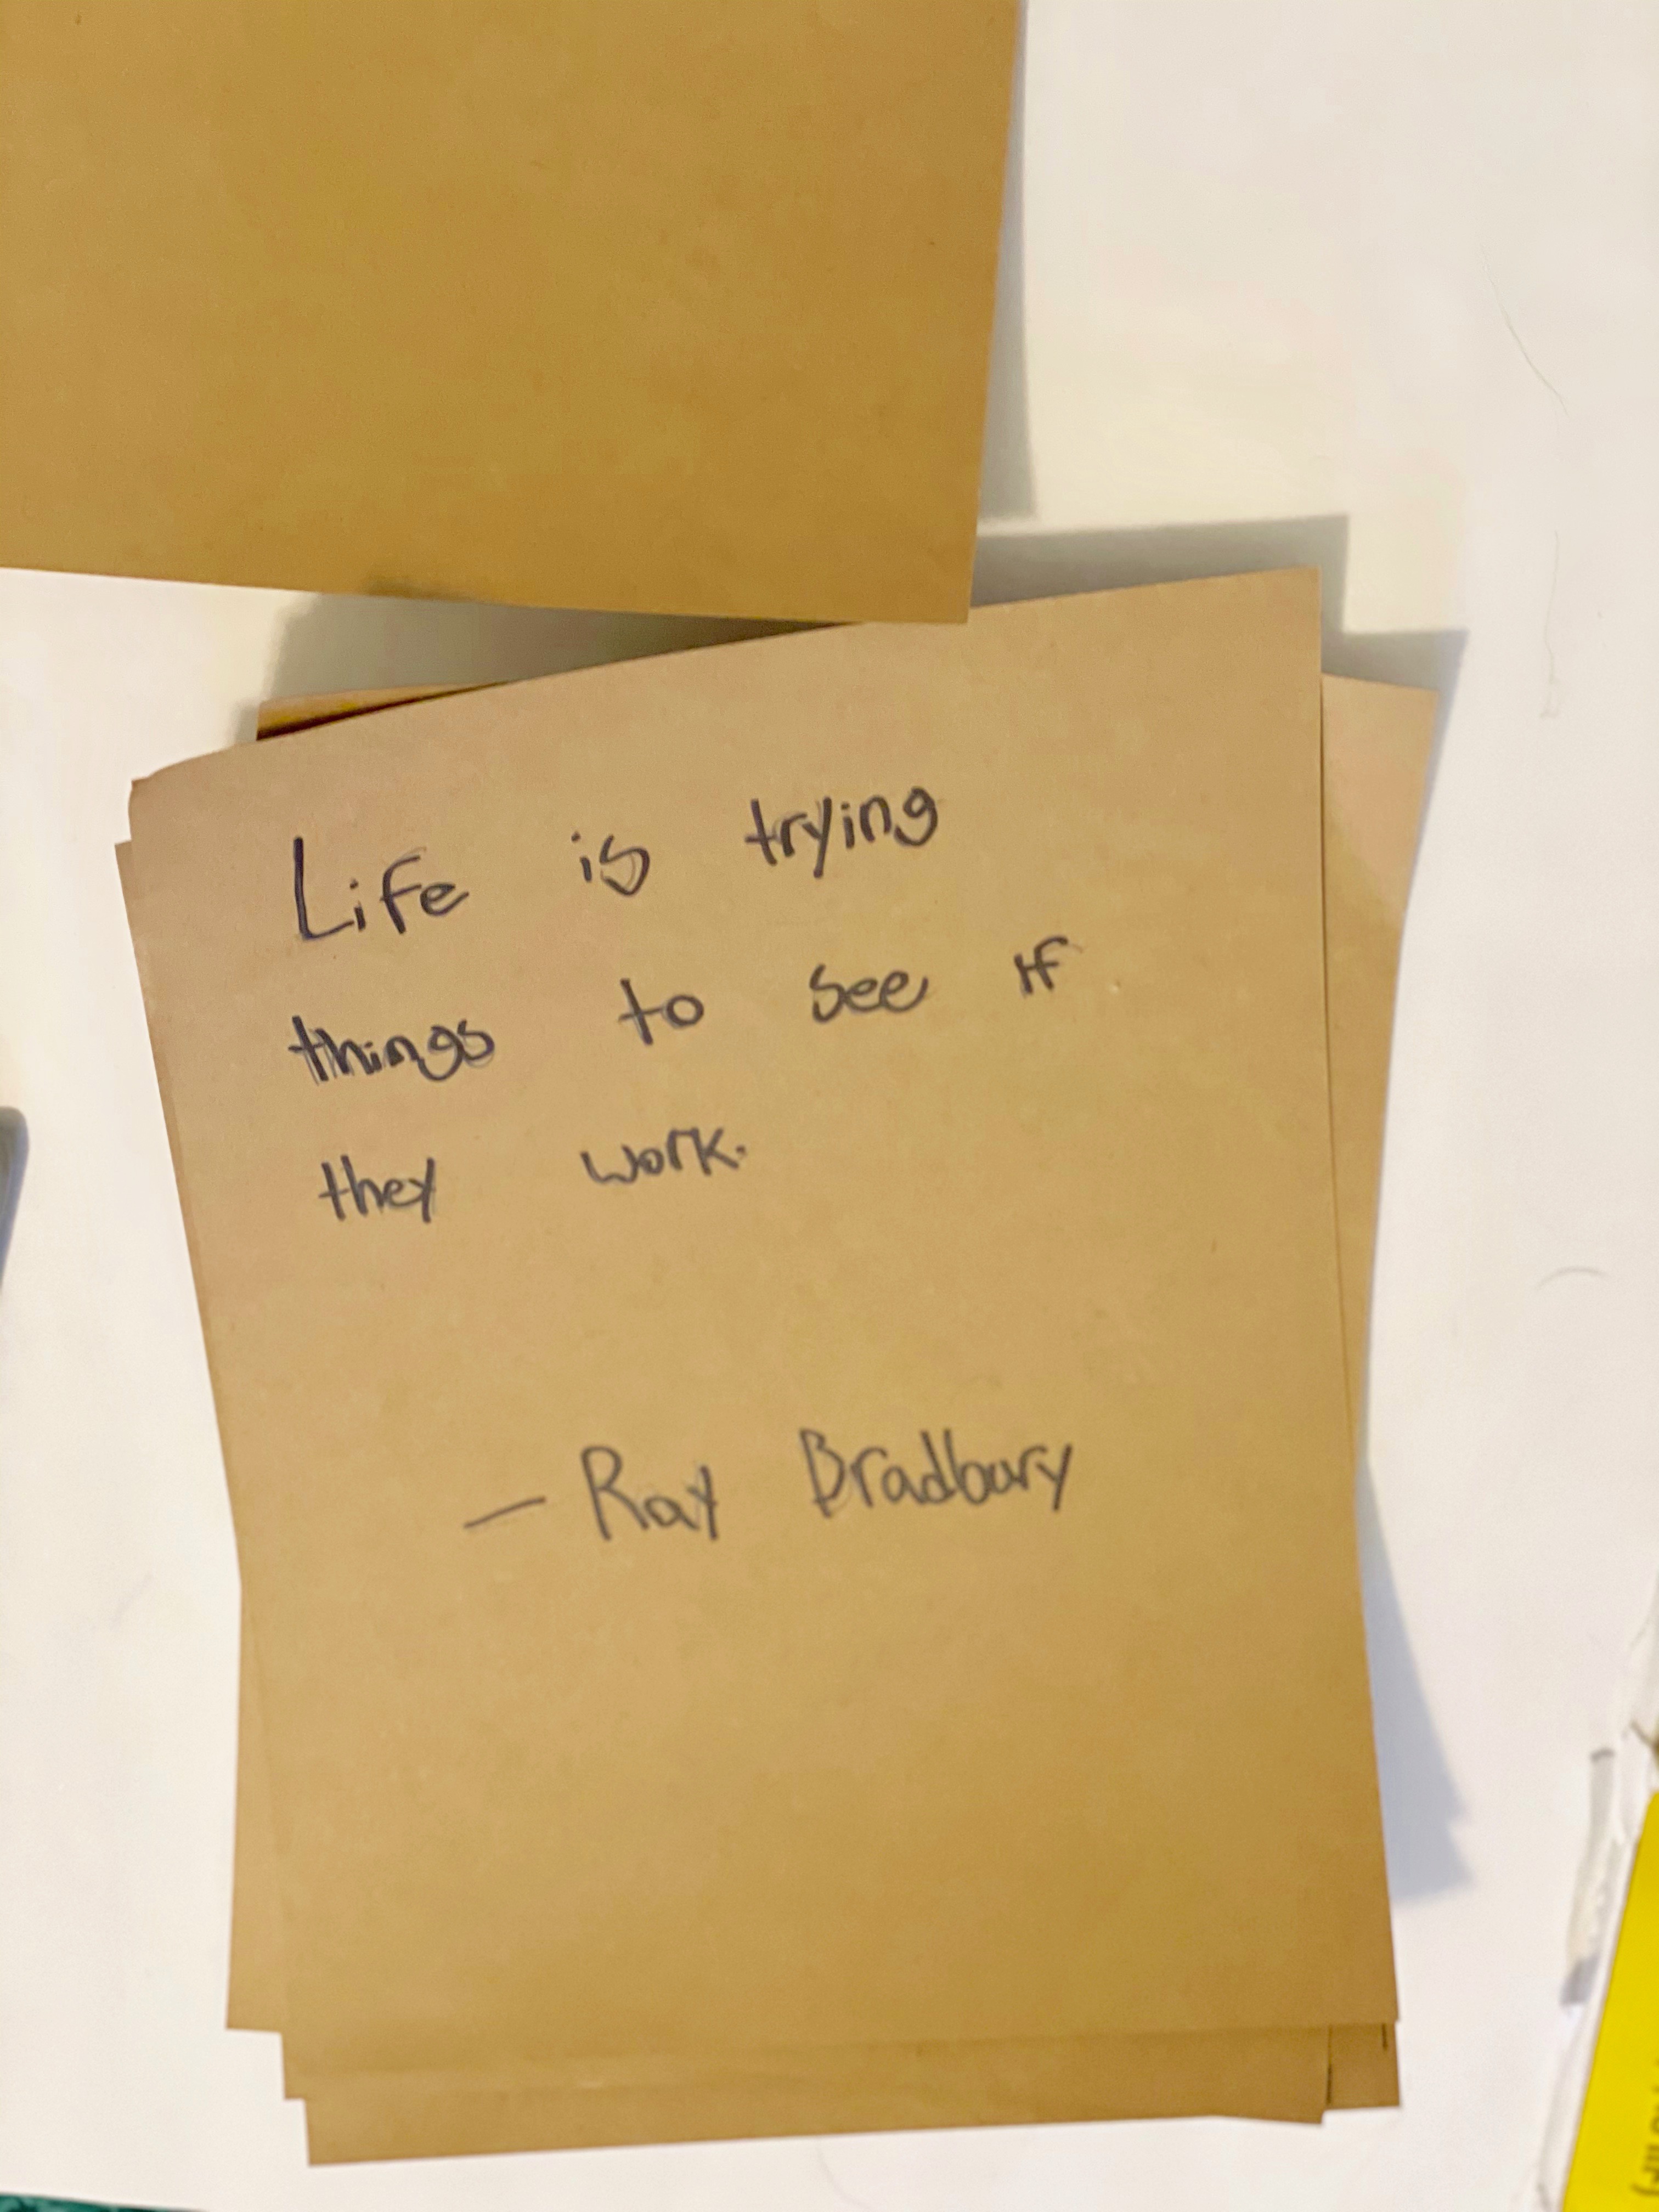 Life is trying
things to see if
they work.
— Ray Bradbury